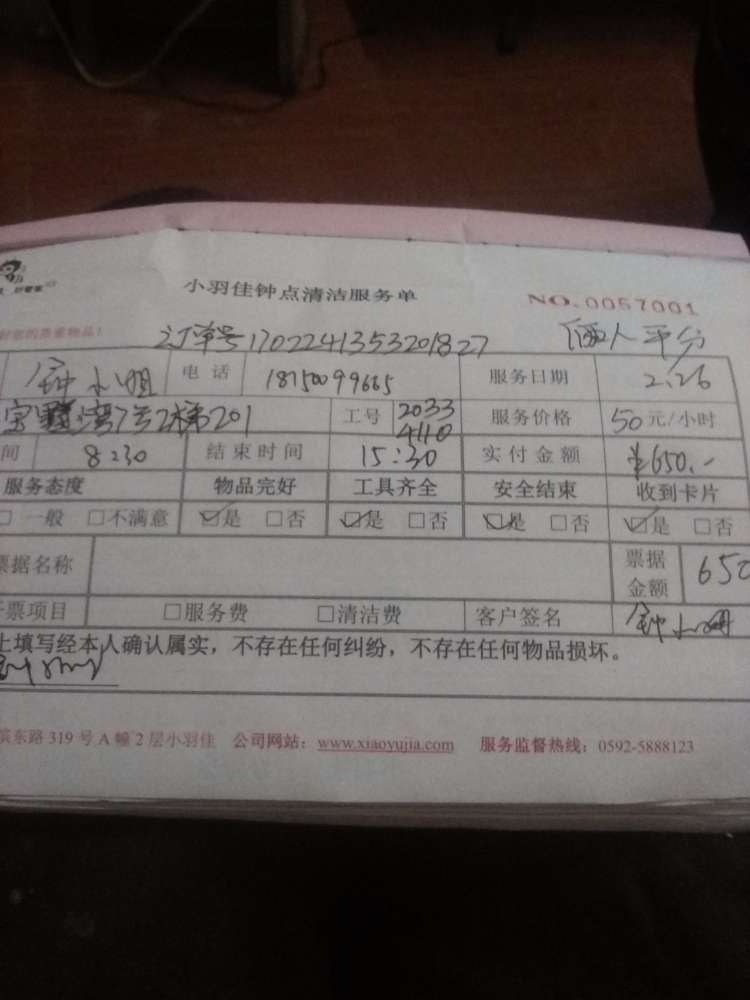 小羽佳钟点清洁服务单
NO.0057001
订单号1702241353201827 俩人平分
钟小姐 电话 18750099665 服务日期 2.26
湾7号2梯201 工号 2033 4110 服务价格 50元/小时
间 8:30 结束时间 15:30 实付金额 ¥650.-
服务态度 物品完好 工具齐全 安全结束 收到卡片
□一般 □不满意 ☑是 □否 ☑是 □否 ☑是 □否 ☑是 □否
票据名称 票据金额 650
开票项目 □服务费 □清洁费 客户签名 钟小姐
上填写经本人确认属实，不存在任何纠纷，不存在任何物品损坏。
滨东路319号A幢2层小羽佳 公司网站：www.xiaoyujia.com 服务监督热线：0592-5888123